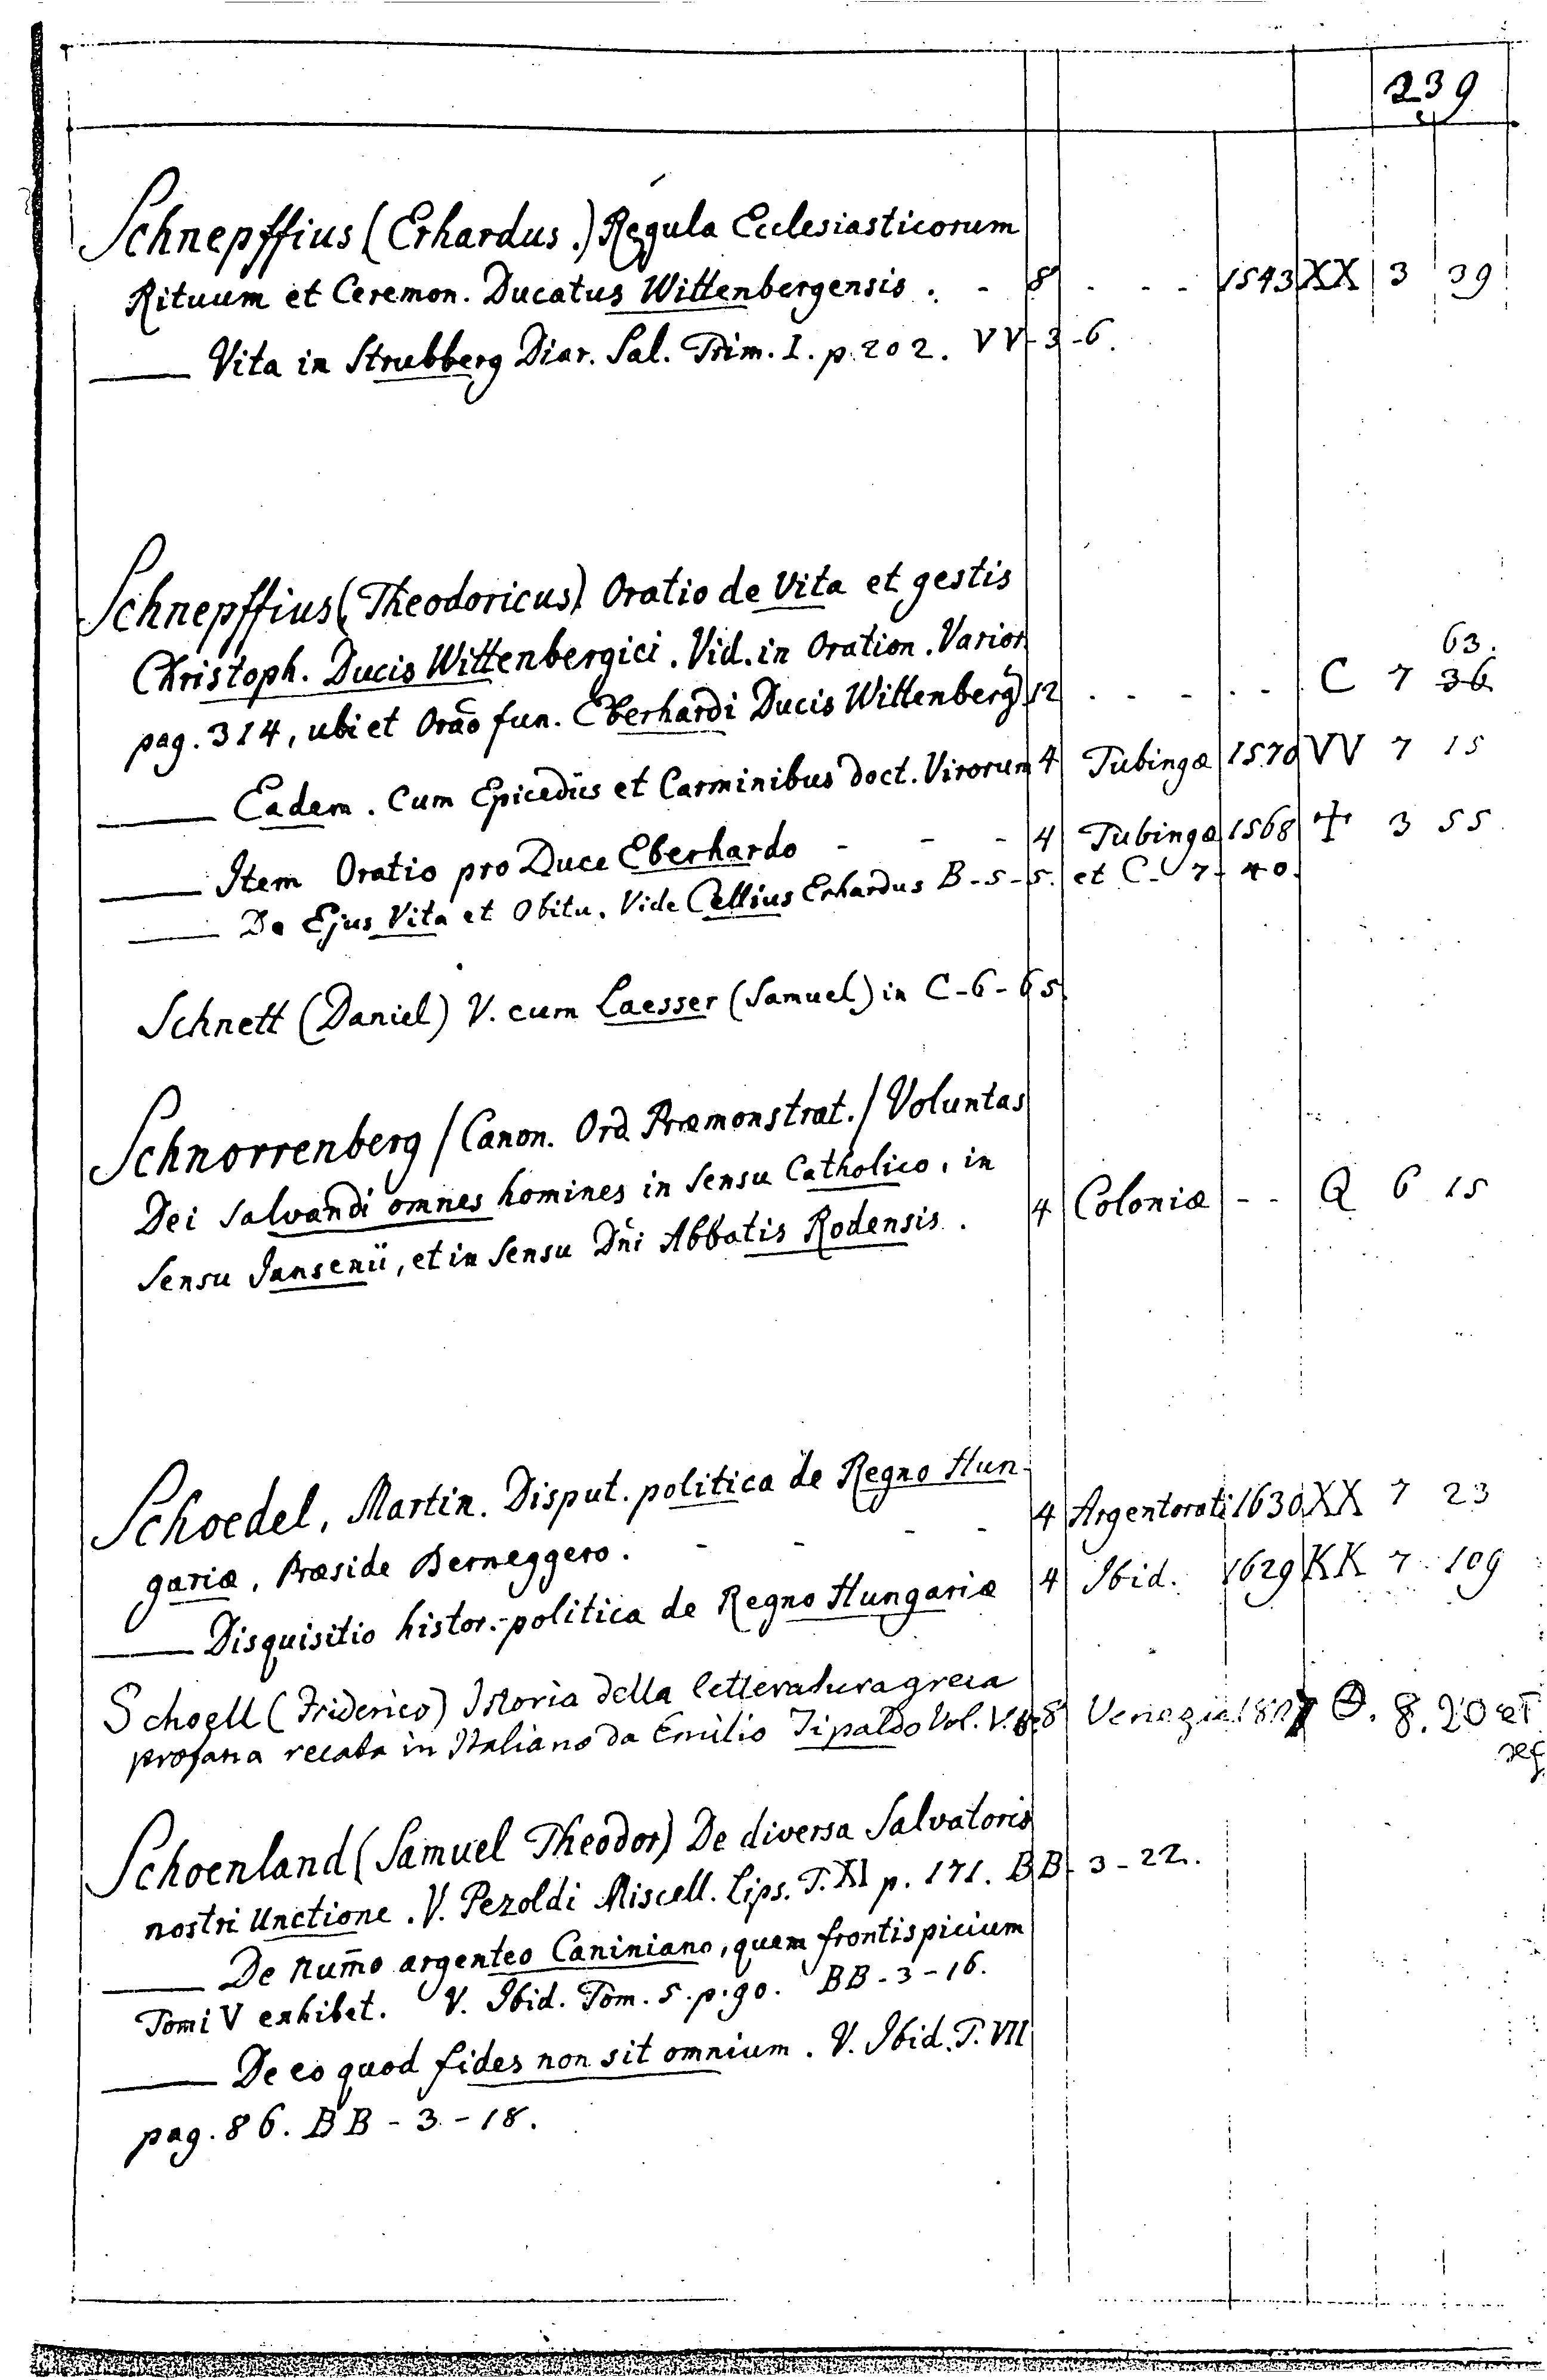 239
Schnepffius (Erhardus.) Regula Ecclesiasticorum
Rituum et Ceremon. Ducatus Wittenbergensis . - 8 . - - - 1543 XX 3 39
—— Vita in Strubberg Diar. Sal. Trim. I. p. 202. VV-3-6.
Schnepffius (Theodoricus) Oratio de Vita et gestis
Christoph. Ducis Wittenbergici. Vid. in Oration. Varior
63.
pag. 314, ubi et Orão fun. Eberhardi Ducis Wittenberg 12 . - - - . - C 7 36
—— Eadem. Cum Epicediis et Carminibus doct. Virorum 4 Tubingæ 1570 VV 7 15
—— Item Oratio pro Duce Eberhardo - - - 4 Tubingæ 1568 ✝ 3 55
—— De Ejus Vita et Obitu. Vide Cellius Erhardus B-5-5. et C-7-40.
Schnett (Daniel) V. cum Laesser (Samuel) in C-6-65.
Schnorrenberg / Canon. Ord. Præmonstrat. / Voluntas
Dei salvandi omnes homines in sensu Catholico, in
sensu Jansenii, et in sensu Dñi Abbatis Rodensis. 4 Coloniæ - - Q 6 15
Schoedel, Martin. Disput. politica de Regno Hun-
gariæ, Præside Berneggero. - - - - 4 Argentorati 1630 XX 7 23
—— Disquisitio histor.-politica de Regno Hungariæ 4 Ibid. 1629 KK 7 109
Schoell (Friderico) Istoria della letteratura greca
profana recata in Italiano da Emilio Tipaldo Vol. V. 8 Venezia Θ. 8. 20 et
seq
Schoenland (Samuel Theodor) De diversa Salvatoris
nostri Unctione. V. Pezoldi Miscell. Lips. T. XI p. 171. BB-3-22.
—— De num̄o argenteo Caniniano, quem frontispicium
Tomi V exhibet. V. Ibid. Tom. 5. p. 90. BB-3-16.
—— De eo quod fides non sit omnium. V. Ibid. T. VII
pag. 86. BB-3-18.